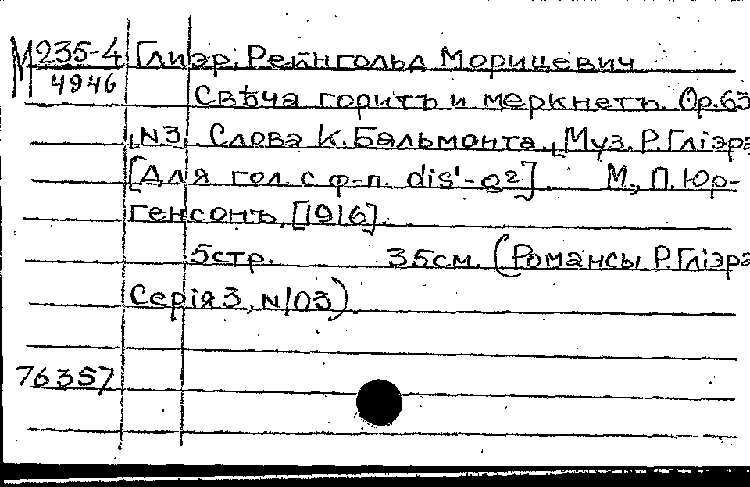 М 235-4 Глиэр, Рейнгольд Морицевич
4946
Свѣча горитъ и меркнетъ. Op.63
N3. Слова К. Бальмонта. Муз. Р. Гліэра
[Для гол. с ф-п. dis¹-g²]. М., П. Юр-
генсонъ, [1916].
5стр. 35см. (Романсы Р. Гліэра
Серія 3, N103).
76357